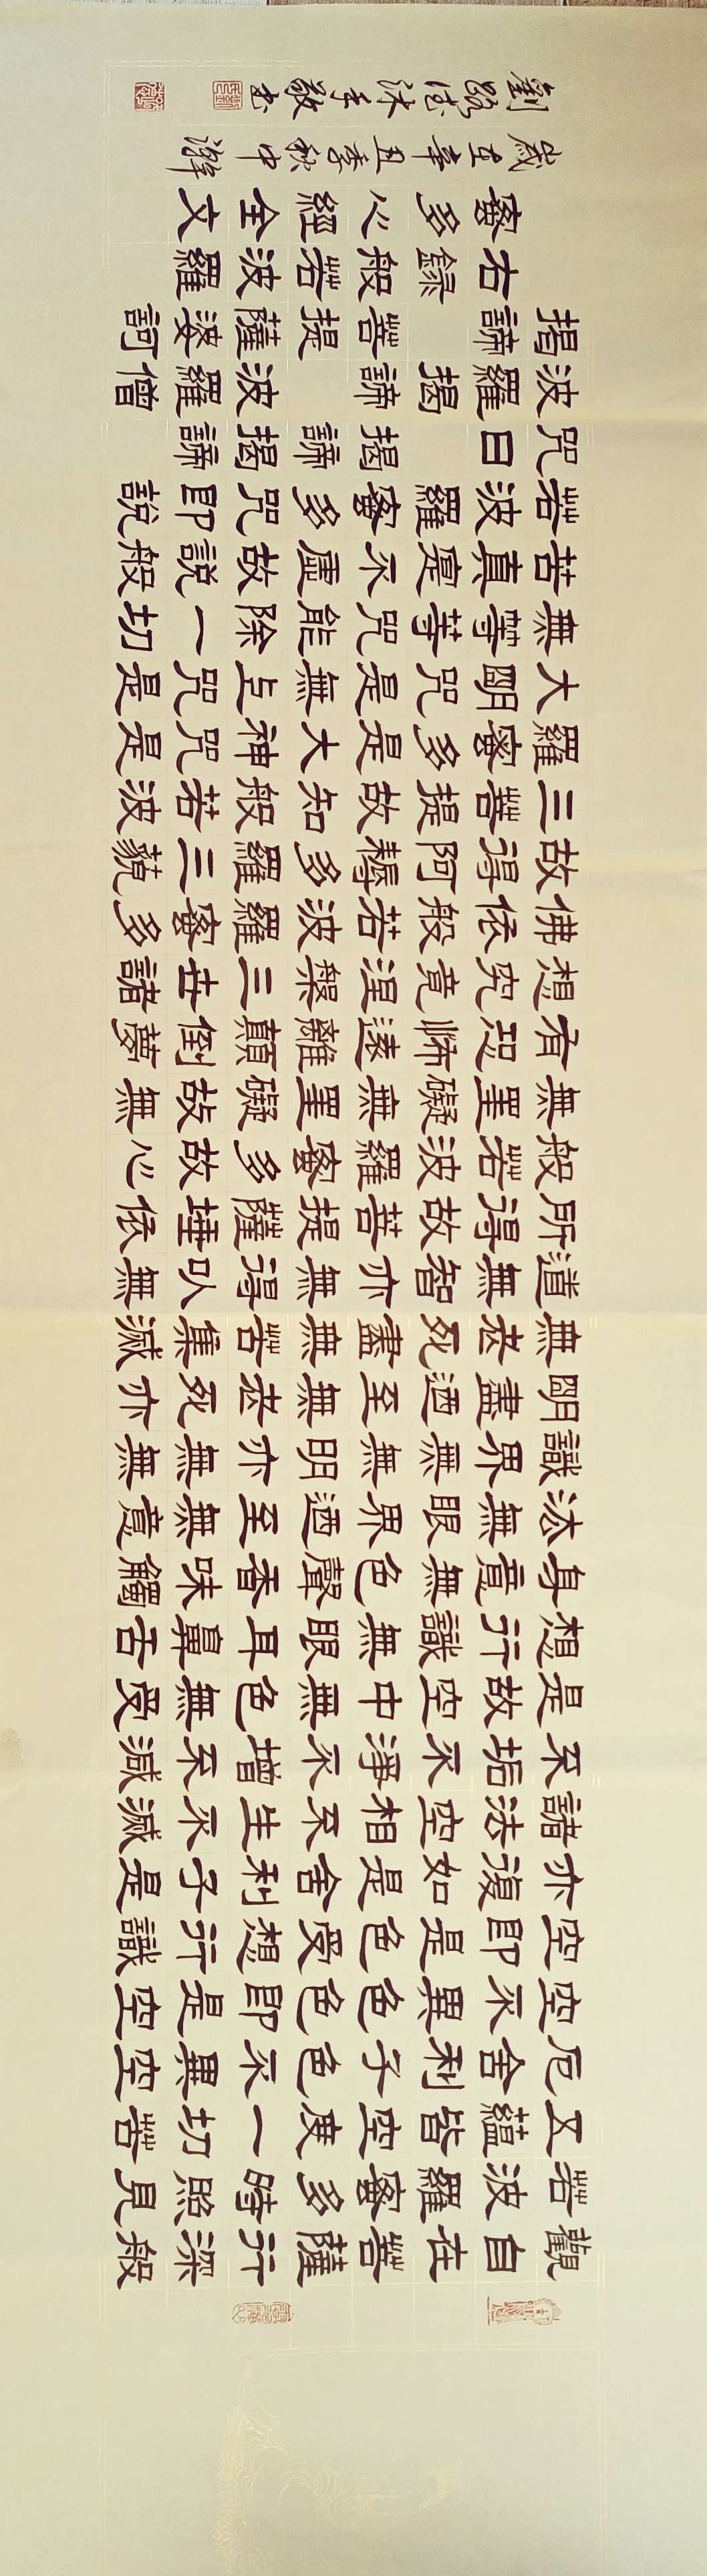 觀自在菩薩行深般
若波羅蜜多時照見
五蘊皆空度一切苦
厄舍利子色不異空
空不異色色即是空
空即是色受想行識
亦復如是舍利子是
諸法空相不生不滅
不垢不淨不增不減
是故空中無色無受
想行識無眼耳鼻舌
身意無色聲香味觸
法無眼界迺至無意
識界無無明亦無無
明盡迺至無老死亦
無老死盡無苦集滅
道無智亦無得以無
所得故菩提薩埵依
般若波羅蜜多故心
無罣礙無罣礙故無
有恐怖遠離顛倒夢
想究竟涅槃三世諸
佛依般若波羅蜜多
故得阿耨多羅三藐
三菩提故知般若波
羅蜜多是大神咒是
大明咒是無上咒是
無等等咒能除一切
苦真實不虛故說般
若波羅蜜多咒即說
咒曰 揭諦 揭諦
波羅揭諦 波羅僧
揭諦 菩提薩婆訶
右錄般若波羅
蜜多心經全文
歲在辛丑季秋中澣
劉 德沐手敬書